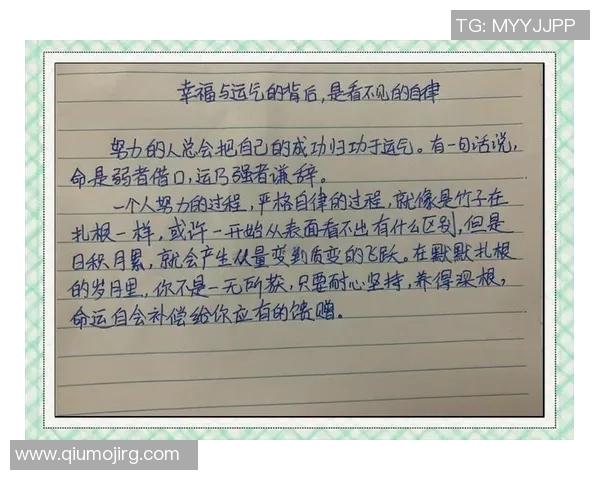 TG: MYYJJPP
幸福与运气的背后,是看不见的自律
努力的人总会把自己的成功归功于运气。有一句话说,
命是弱者借口,运乃强者谦辞。
一个人努力的过程,严格自律的过程,就像是竹子在
扎根一样,或许一开始从表面看不出有什么区别,但是
日积月累,就会产生从量变到质变的飞跃。在默默扎根
的岁月里,你不是一无所获,只要耐心坚持,养得深根,
命运自会补偿给你应有的馈赠。
www.qiumojirg.com